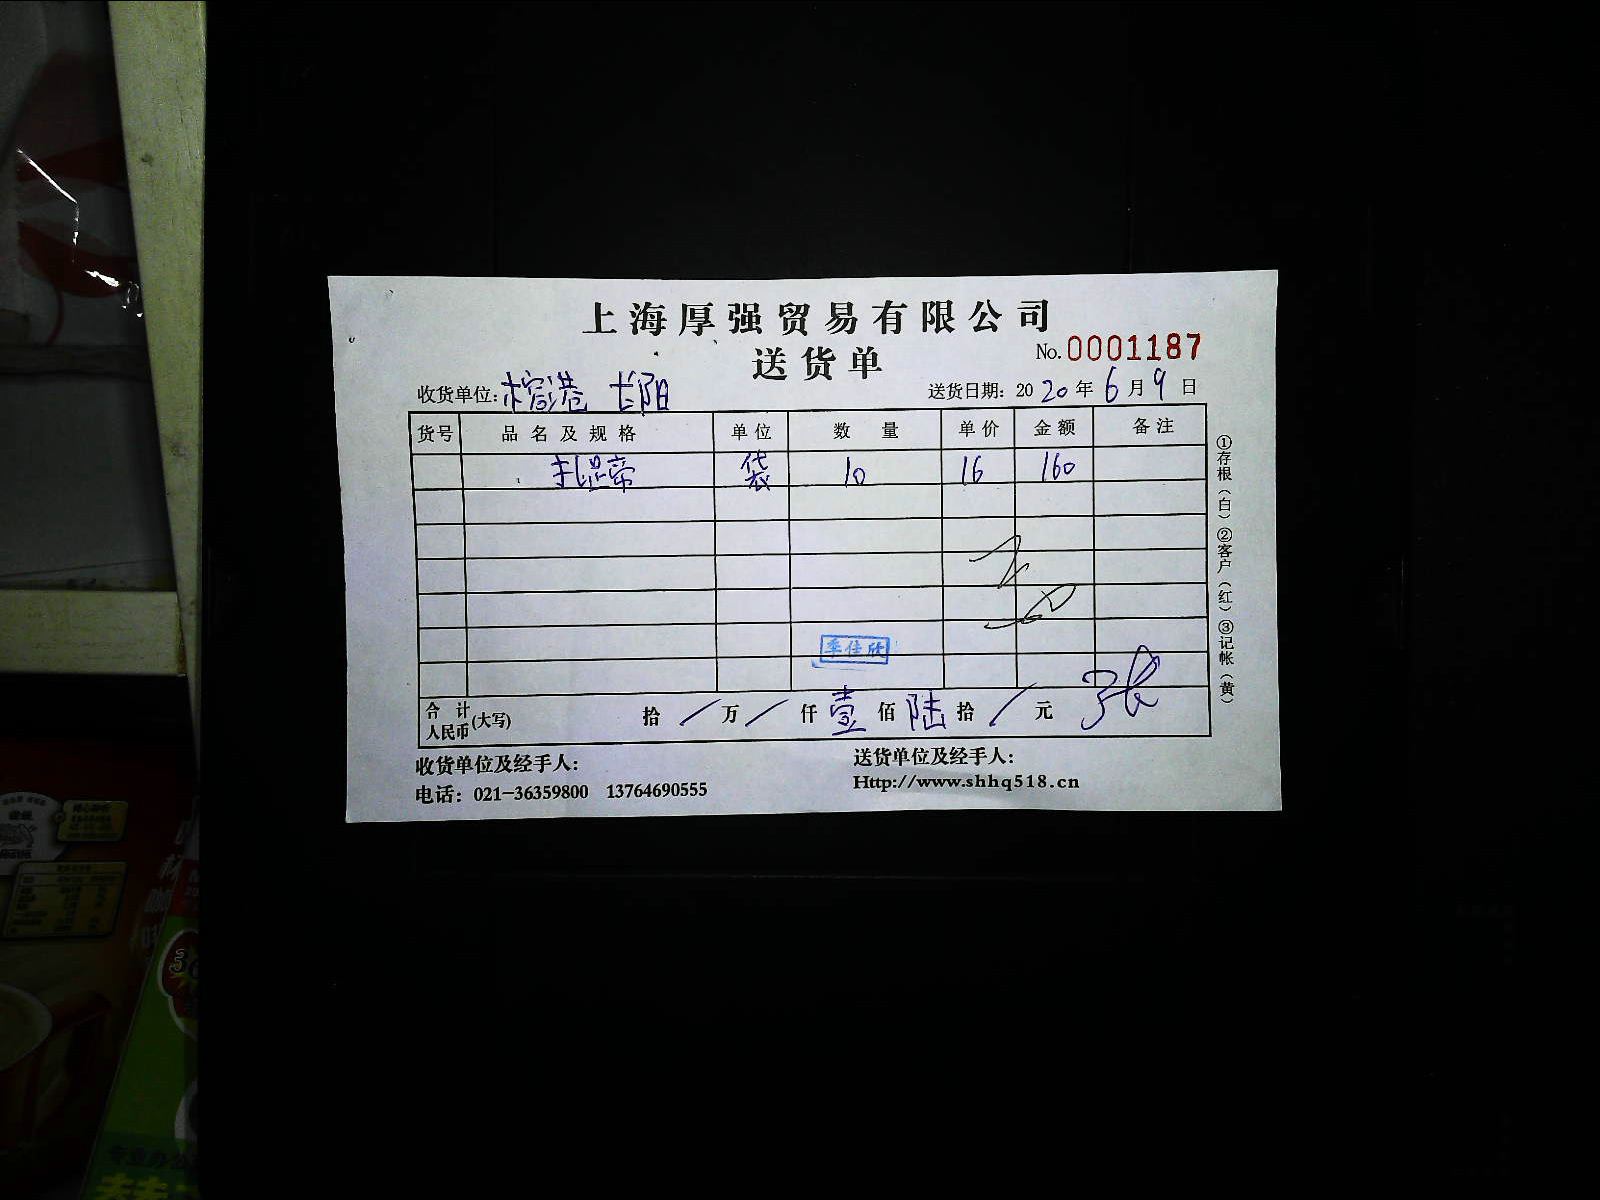 上海厚强贸易有限公司
送货单
No.0001187
收货单位：榕港 长阳
送货日期：2020年6月9日
货号 品名及规格 单位 数量 单价 金额 备注
扎啤帝 袋 10 16 160
季佳欣
合计人民币(大写) 拾／万／仟壹佰陆拾／元
张
收货单位及经手人：
送货单位及经手人：
电话：021-36359800 13764690555
Http://www.shhq518.cn
①存根（白）②客户（红）③记帐（黄）
专业办公